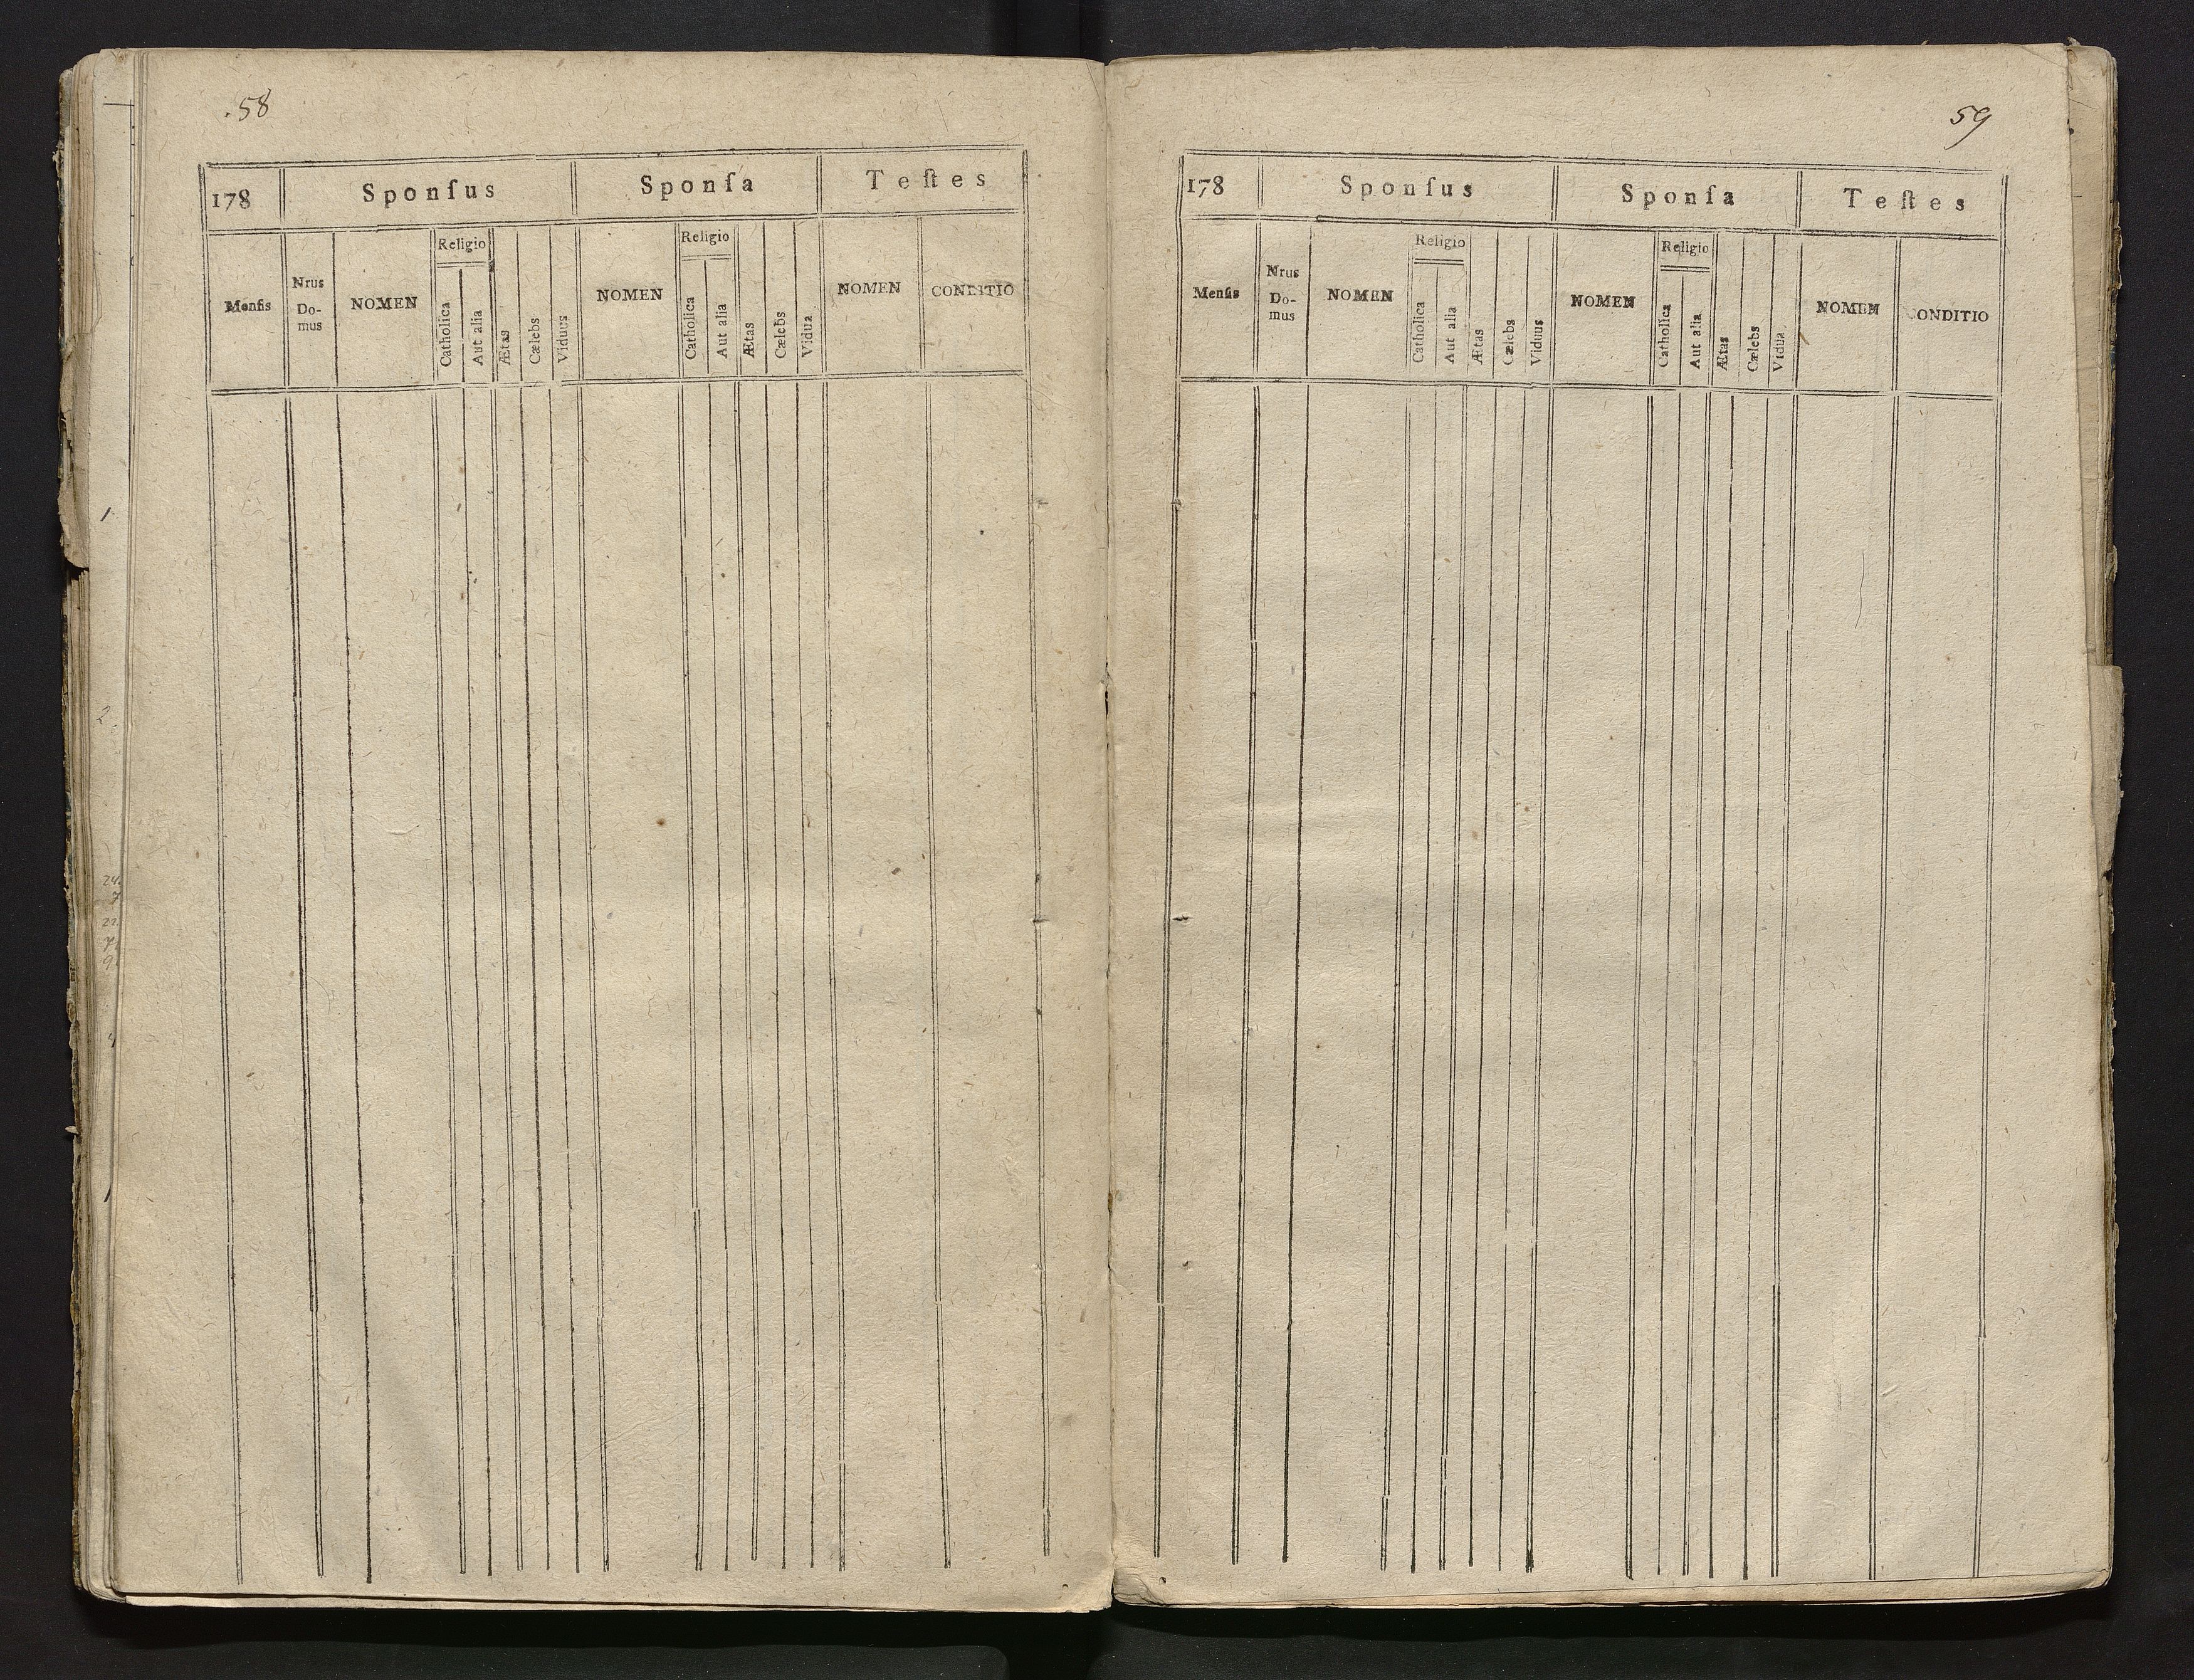 58
178 Sponſus Sponſa Teſtes
Menſis Nrus Do-mus NOMEN Religio Catholica Aut alia Ætas Cælebs Viduus NOMEN Religio Catholica Aut alia Ætas Cælebs Vidua NOMEN CONDITIO
59
178 Sponſus Sponſa Teſtes
Menſis Nrus Do-mus NOMEN Religio Catholica Aut alia Ætas Cælebs Viduus NOMEN Religio Catholica Aut alia Ætas Cælebs Vidua NOMEN CONDITIO